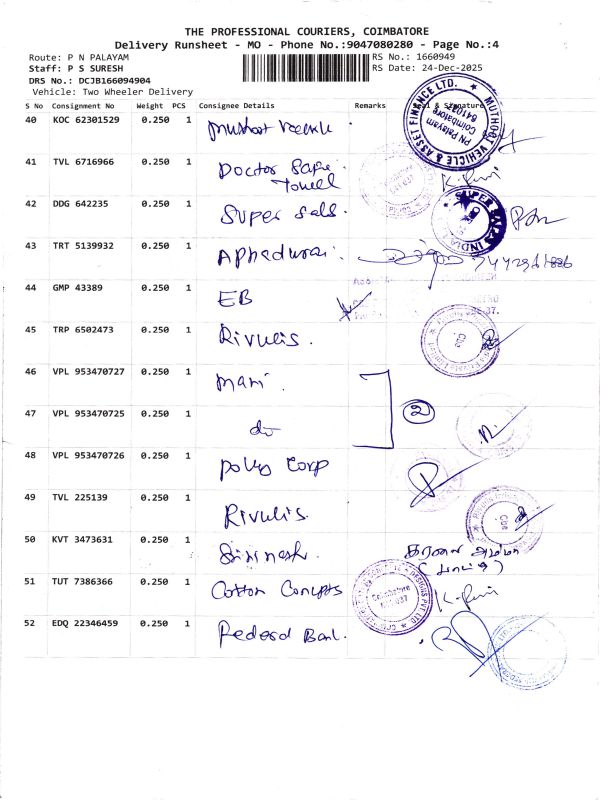 THE PROFESSIONAL COURIERS, COIMBATORE
Delivery Runsheet - MO - Phone No.:9047080280 - Page No.:4
Route: P N PALAYAM RS No.: 1660949
Staff: P S SURESH RS Date: 24-Dec-2025
DRS No.: DCJB166094904
Vehicle: Two Wheeler Delivery
S No Consignment No Weight PCS Consignee Details Remarks Seal & Signature
MUTHOOT VEHICLE & ASSET FINANCE LTD.
PN Palayam
Coimbatore
40 KOC 62301529 0.250 1 Muthoot
41 TVL 6716966 0.250 1 Doctor
Towel
42 DDG 642235 0.250 1 Super Sals.
43 TRT 5139932 0.250 1
44 GMP 43389 0.250 1 EB
45 TRP 6502473 0.250 1 Rivulis.
46 VPL 953470727 0.250 1 Mani.
2
47 VPL 953470725 0.250 1 do
48 VPL 953470726 0.250 1 Poly Corp
49 TVL 225139 0.250 1 Rivulis.
50 KVT 3473631 0.250 1
அம்மா
51 TUT 7386366 0.250 1 Cotton Concepts
Coimbatore
52 EDQ 22346459 0.250 1 Federal Bank.